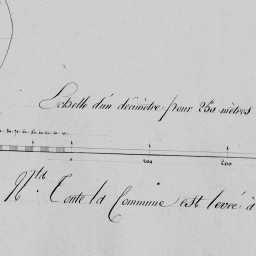 Echelle d'un décimètre pour 250 mètres
200
Nta Toute la Commune est levée à